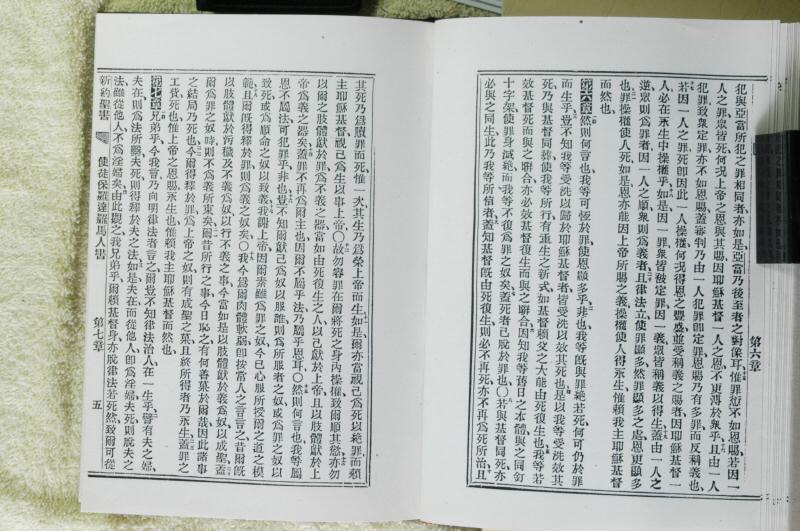 第六章
犯與亞當所犯之罪相同者亦如是亞當乃後至者之對像耳惟罪愆不如恩賜若因一
人之罪衆皆死何况上帝之恩與其賜因耶穌基督一人之恩不更溥於衆乎且由一人
犯罪致衆定罪亦不如恩賜蓋審判乃由一人犯罪卽定罪恩賜乃有多罪而反稱義也
若因一人之罪死卽因此一人操權何况得恩之豐盛並受稱義之賜者因耶穌基督一
人必在永生中操權乎如是因一罪衆皆被定罪因一義衆皆稱義以得生蓋由一人之
逆衆則爲罪者因一人之順衆則爲義者且律法立使罪顯多然罪顯多之處恩更顯多
也罪操權使人死如是恩亦能因上帝所賜之義操權使人得永生惟賴我主耶穌基督
而然也
第六章然則何言也我等可恆於罪使恩顯多乎非也我等旣與罪絕若死何可仍於罪
而生乎豈不知我等受洗以歸於耶穌基督者皆受洗以效其死也是以我等受洗效其
死乃與基督同葬使我等所行有重生之新式如基督賴父之大能由死復生也我等若
效基督而死與之聯合亦必效基督復生而與之聯合因知我等舊日之本體與之同釘
十字架使罪身誠絕而我等不復爲罪之奴矣蓋死者已脫於罪也〇若與基督同死亦
必與之同生此乃我等所信者蓋知基督旣由死復生則必不再死亦不再爲死所治且
其死乃爲贖罪而死惟一次其生乃爲榮上帝而生如是爾亦當視己爲死以絕罪而賴
主耶穌基督視己爲生以事上帝〇故勿容罪在爾將死之身內操權致爾順其慾亦勿
以爾之肢體獻於罪爲不義之器當如由死復生之人以己獻於上帝且以肢體獻於上
帝爲義之器矣蓋罪不再爲爾主也因爾不屬乎法乃屬乎恩耳〇然則何言也我等屬
恩不屬法可犯罪乎非也豈不知爾獻己爲奴以服誰則爲所服者之奴或爲罪之奴以
致死或爲順命之奴以致義我謝上帝因爾素雖爲罪之奴今已心服所授爾之道之模
範且爾旣得釋於罪則爲義之奴矣〇我今爲爾肉體軟弱卽按常人之言言之昔爾旣
以肢體獻於污穢及不義爲奴以行不義之事今當如是以肢體獻於義爲奴以成聖蓋
爾爲罪之奴時則不爲義所束矣爾昔所行之事今日恥之有何善菓於爾哉因此諸事
之結局乃死也今爾得釋於罪爲上帝之奴則有成聖之菓且終所得者乃永生蓋罪之
工貲死也惟上帝之恩賜永生也惟賴我主耶穌基督而然也
第七章兄弟乎今我言乃向明律法者言之爾豈不知律法治人在一生乎譬有夫之婦
夫在則爲法所繫夫死則得釋於夫之法如是夫在而從他人卽爲淫婦夫死則脫夫之
法雖從他人不爲淫婦矣由此觀之我兄弟乎爾賴基督身亦脫律法若死然致爾可從
新約聖書 使徒保羅達羅馬人書 第七章 五